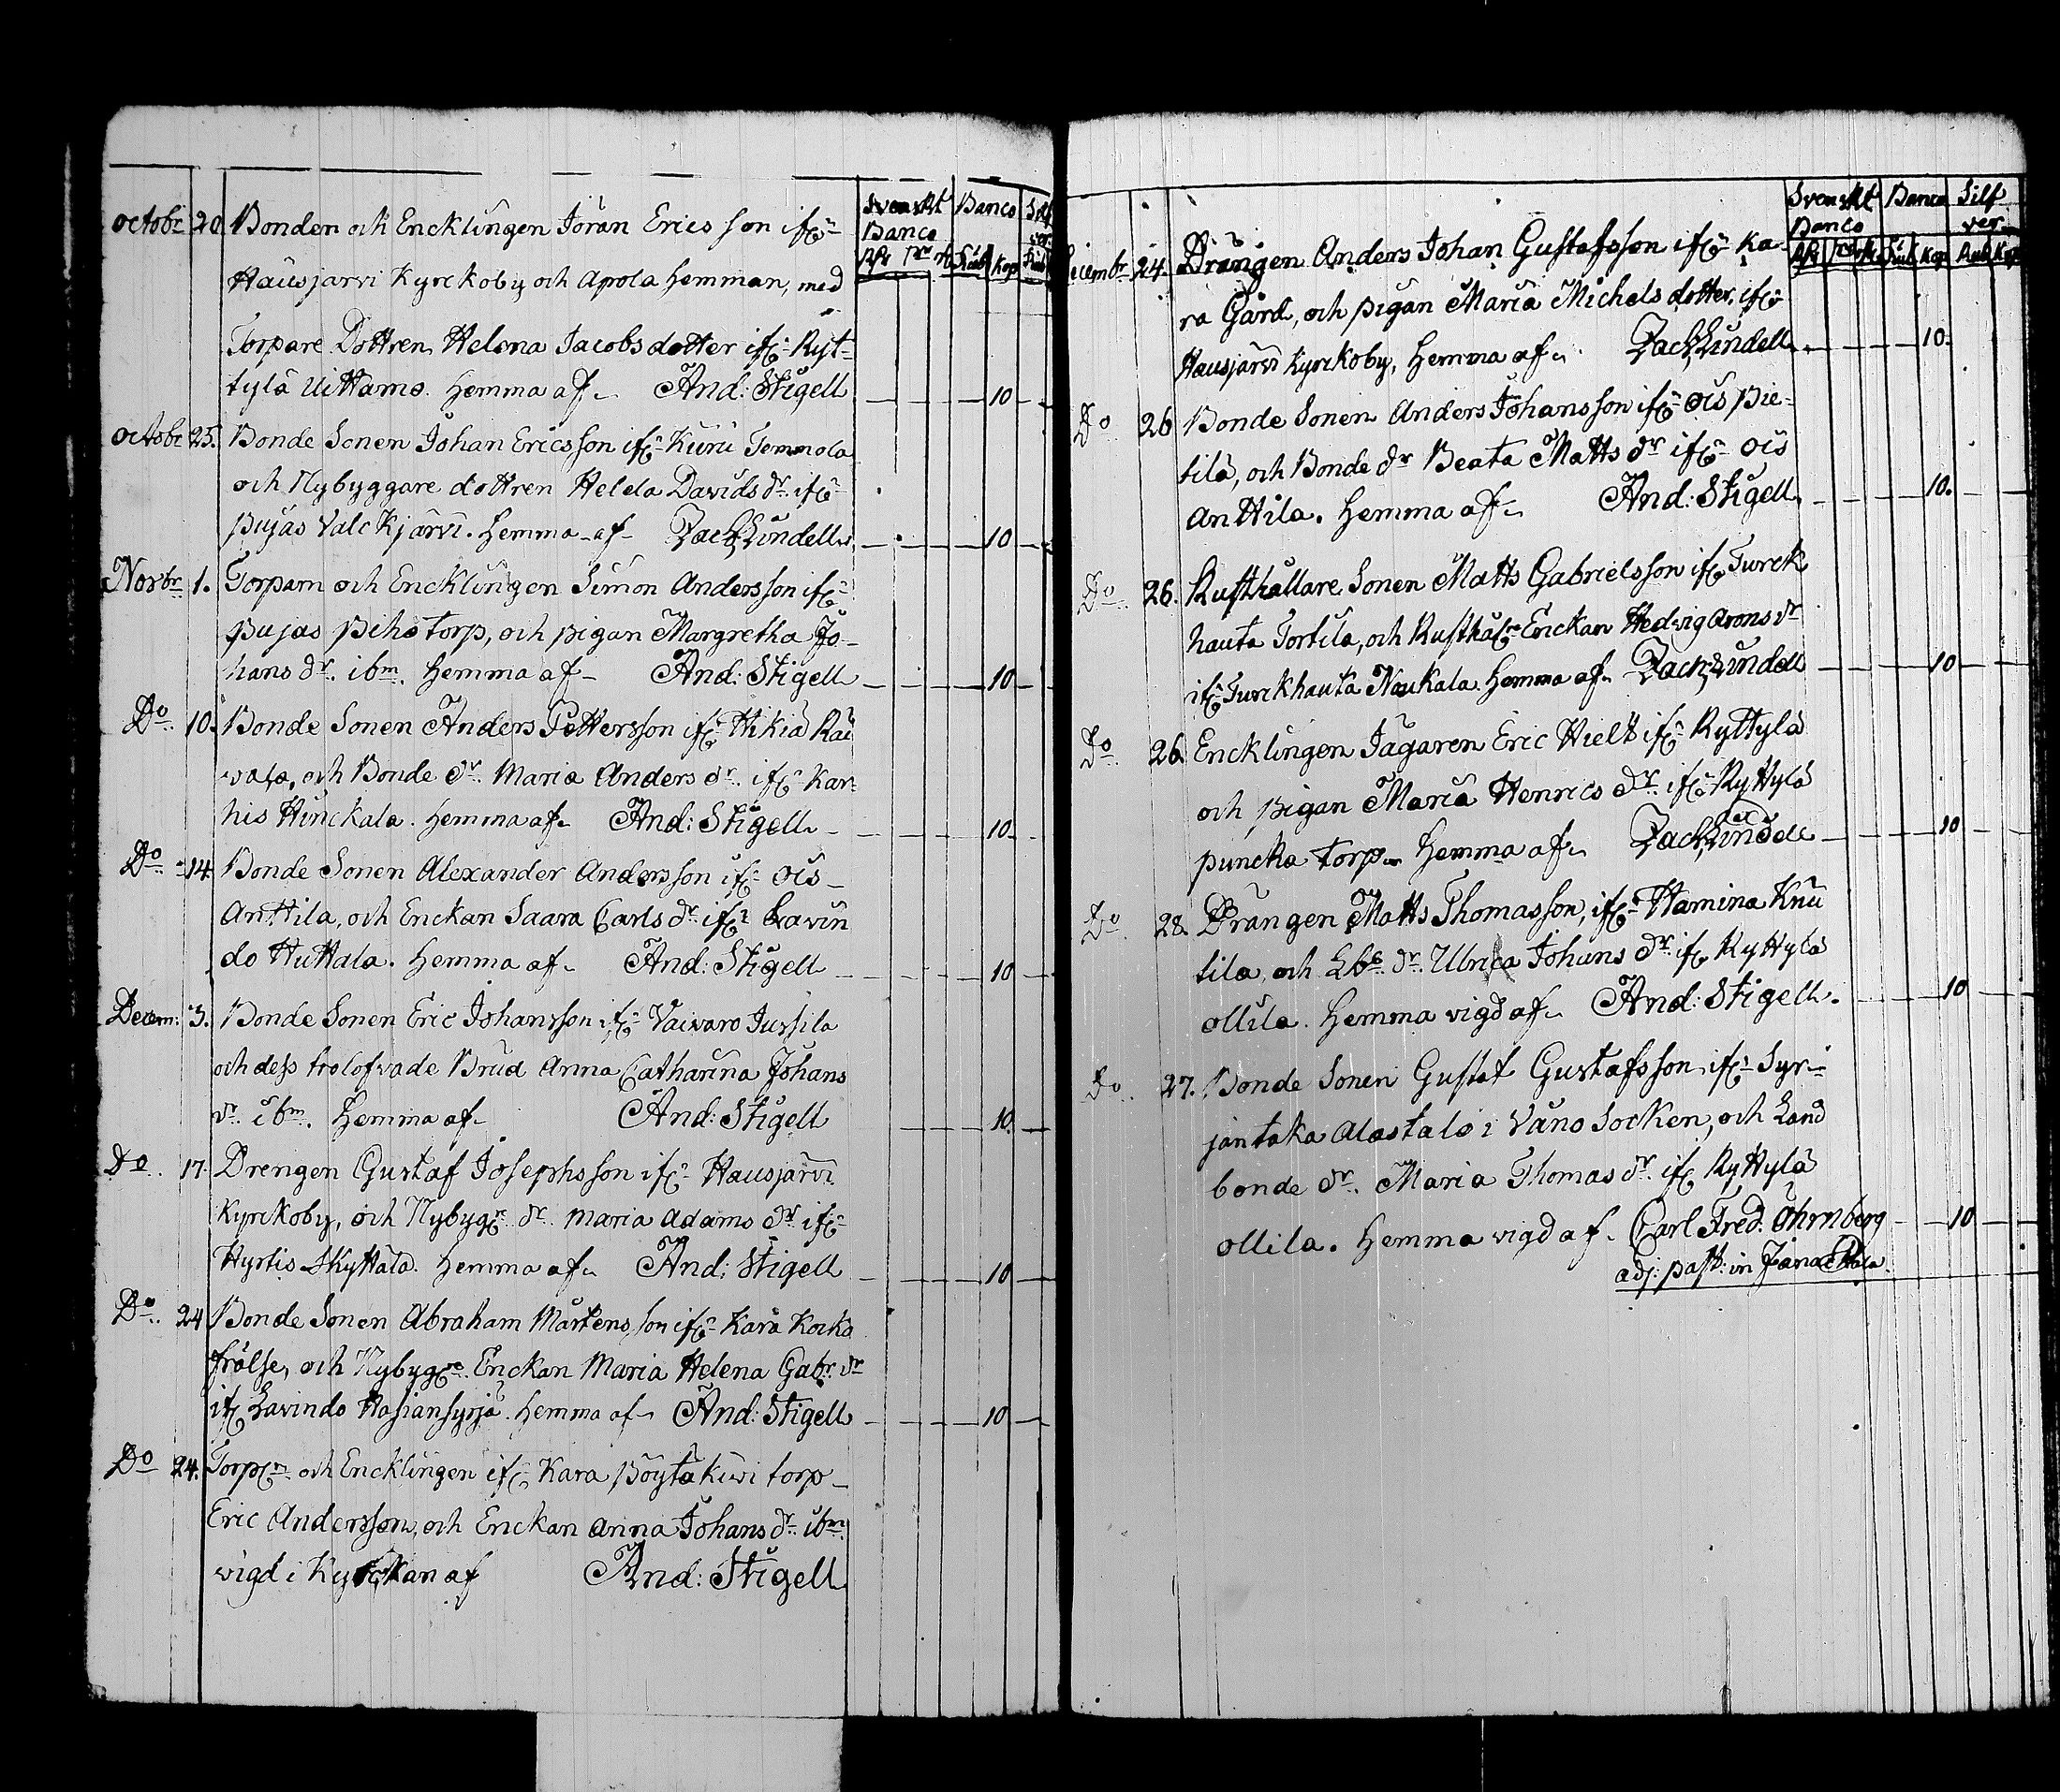 Svenskt Banco Silf
Banco ver
Rdr Rub Kop Rub
Octobr 20 Bonden och Encklingen Jöran Ericsson ifrn
Hausjarvi Kyrckoby och Apola Hemman, med
Torpare Dottren Helena Jacobsdotter ifrn Ryt-
tylä Uittamo. Hemma af And: Stigell 10
Octobr 25. Bonde Sonen Johan Ericsson ifrn Kuru Temmola
och Nybyggare dottren Helela Davids dr ifrn
pujas Valckjärvi. Hemma af Zach Lindell 10
Novbr 1. Torparn och Encklingen Simon Andersson ifrn
pujas piho torp, och pigan Margretha Jo-
hans dr. ibm. Hemma af And: Stigell 10
Do 10. Bonde Sonen Anders Pettersson ifrn Hikiä Rau
wala, och Bonde dr. Maria Anders dr. ifrn Kar-
his Hinckala. Hemma af And: Stigell 10
Do 14 Bonde Sonen Alexander Andersson ifrn Ois
Anttila, och Enckan Saara Carls dr. ifrn Lavin
do Huttala. Hemma af And: Stigell 10
Decem: 3. Bonde Sonen Eric Johansson ifrn Vaivaro Jussila
och dess trolofvade Brud Anna Catharina Johans
dr. ibm. Hemma af And: Stigell 10.
Do 17. Drengen Gustaf Josephsson ifrn Hausjärvi
Kyrckoby, och Nybygr dr. Maria Adams dr. ifrn
Hyrtis Skyttälä. Hemma af And: Stigell 10
Do 24 Bonde Sonen Abraham Mårtensson ifrn Kara Kocko
frälse, och Nybygre Enckan Maria Helena Gabr. dr
ifrn Lavindo Hasiansyrjä. Hemma af And: Stigell 10
Do 24. Torpm och Encklingen ifrn Kara pöytäkivi torp
Eric Andersson, och Enckan Anna Johans dr. ibm
vigd i Kyrckan af And: Stigell
Svenskt Banco Silf
Banco ver
Rdr Rub Kop Rub Kop
Decembr 24. Drängen Anders Johan Gustafsson ifrn Ka-
ra Gård, och pigan Maria Michels dotter, ifrn
Hausjärvi Kyrckoby, Hemma af Zach Lindell 10.
Do 26 Bonde Sonen Anders Johansson ifrn Ois pie-
tilä, och Bonde dr Beata Matts dr ifrn Ois
Anttila. Hemma af And: Stigell 10.
Do 26. Rusthållare Sonen Matts Gabrielsson ifrn Turck
hauta Tortila, och Rusthålre Enckan Hedvig Arons dr
ifrn Turckhauta Naukala. Hemma af Zach Lindell 10
Do 26. Encklingen Jägaren Eric Hielt ifrn Ryttylä
och pigan Maria Henrics dr. ifrn Ryttylä
puncka torp. Hemma af Zach Lindell 10
Do 28. Drängen Matts Thomasson, ifrn Hamina Knu
tila, och Lbe dr. Ulrica Johans dr ifrn Ryttylä
Ollila. Hemma vigd af And: Stigell. 10
Do 27. Bonde Sonen Gustaf Gustafsson ifrn Syr-
jäntaka Alastalo i Vånå Socken, och Land
bonde dr. Maria Thomas dr. ifrn Ryttylä
Ollila. Hemma vigd af Carl Fred. Öhrnberg 10
adj: past: in Janackala.